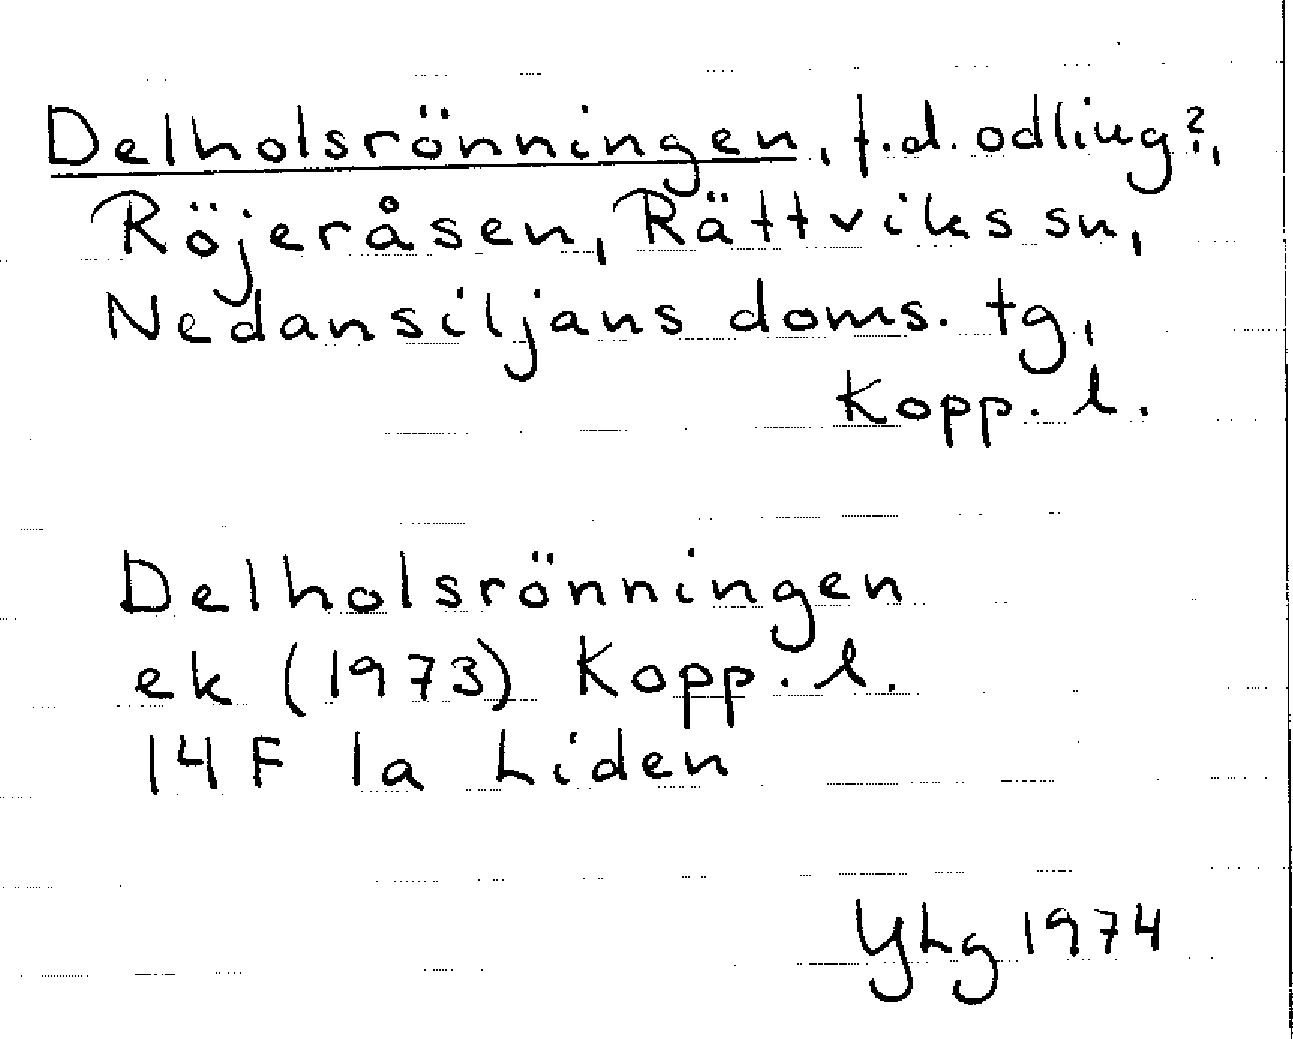 Delholsrönningen, f.d. odling?,
Röjeråsen, Rättviks sn,
Nedansiljans doms. tg,
Kopp. l.
Delholsrönningen
ek (1973) Kopp. l.
14F 1a Liden
YLg 1974